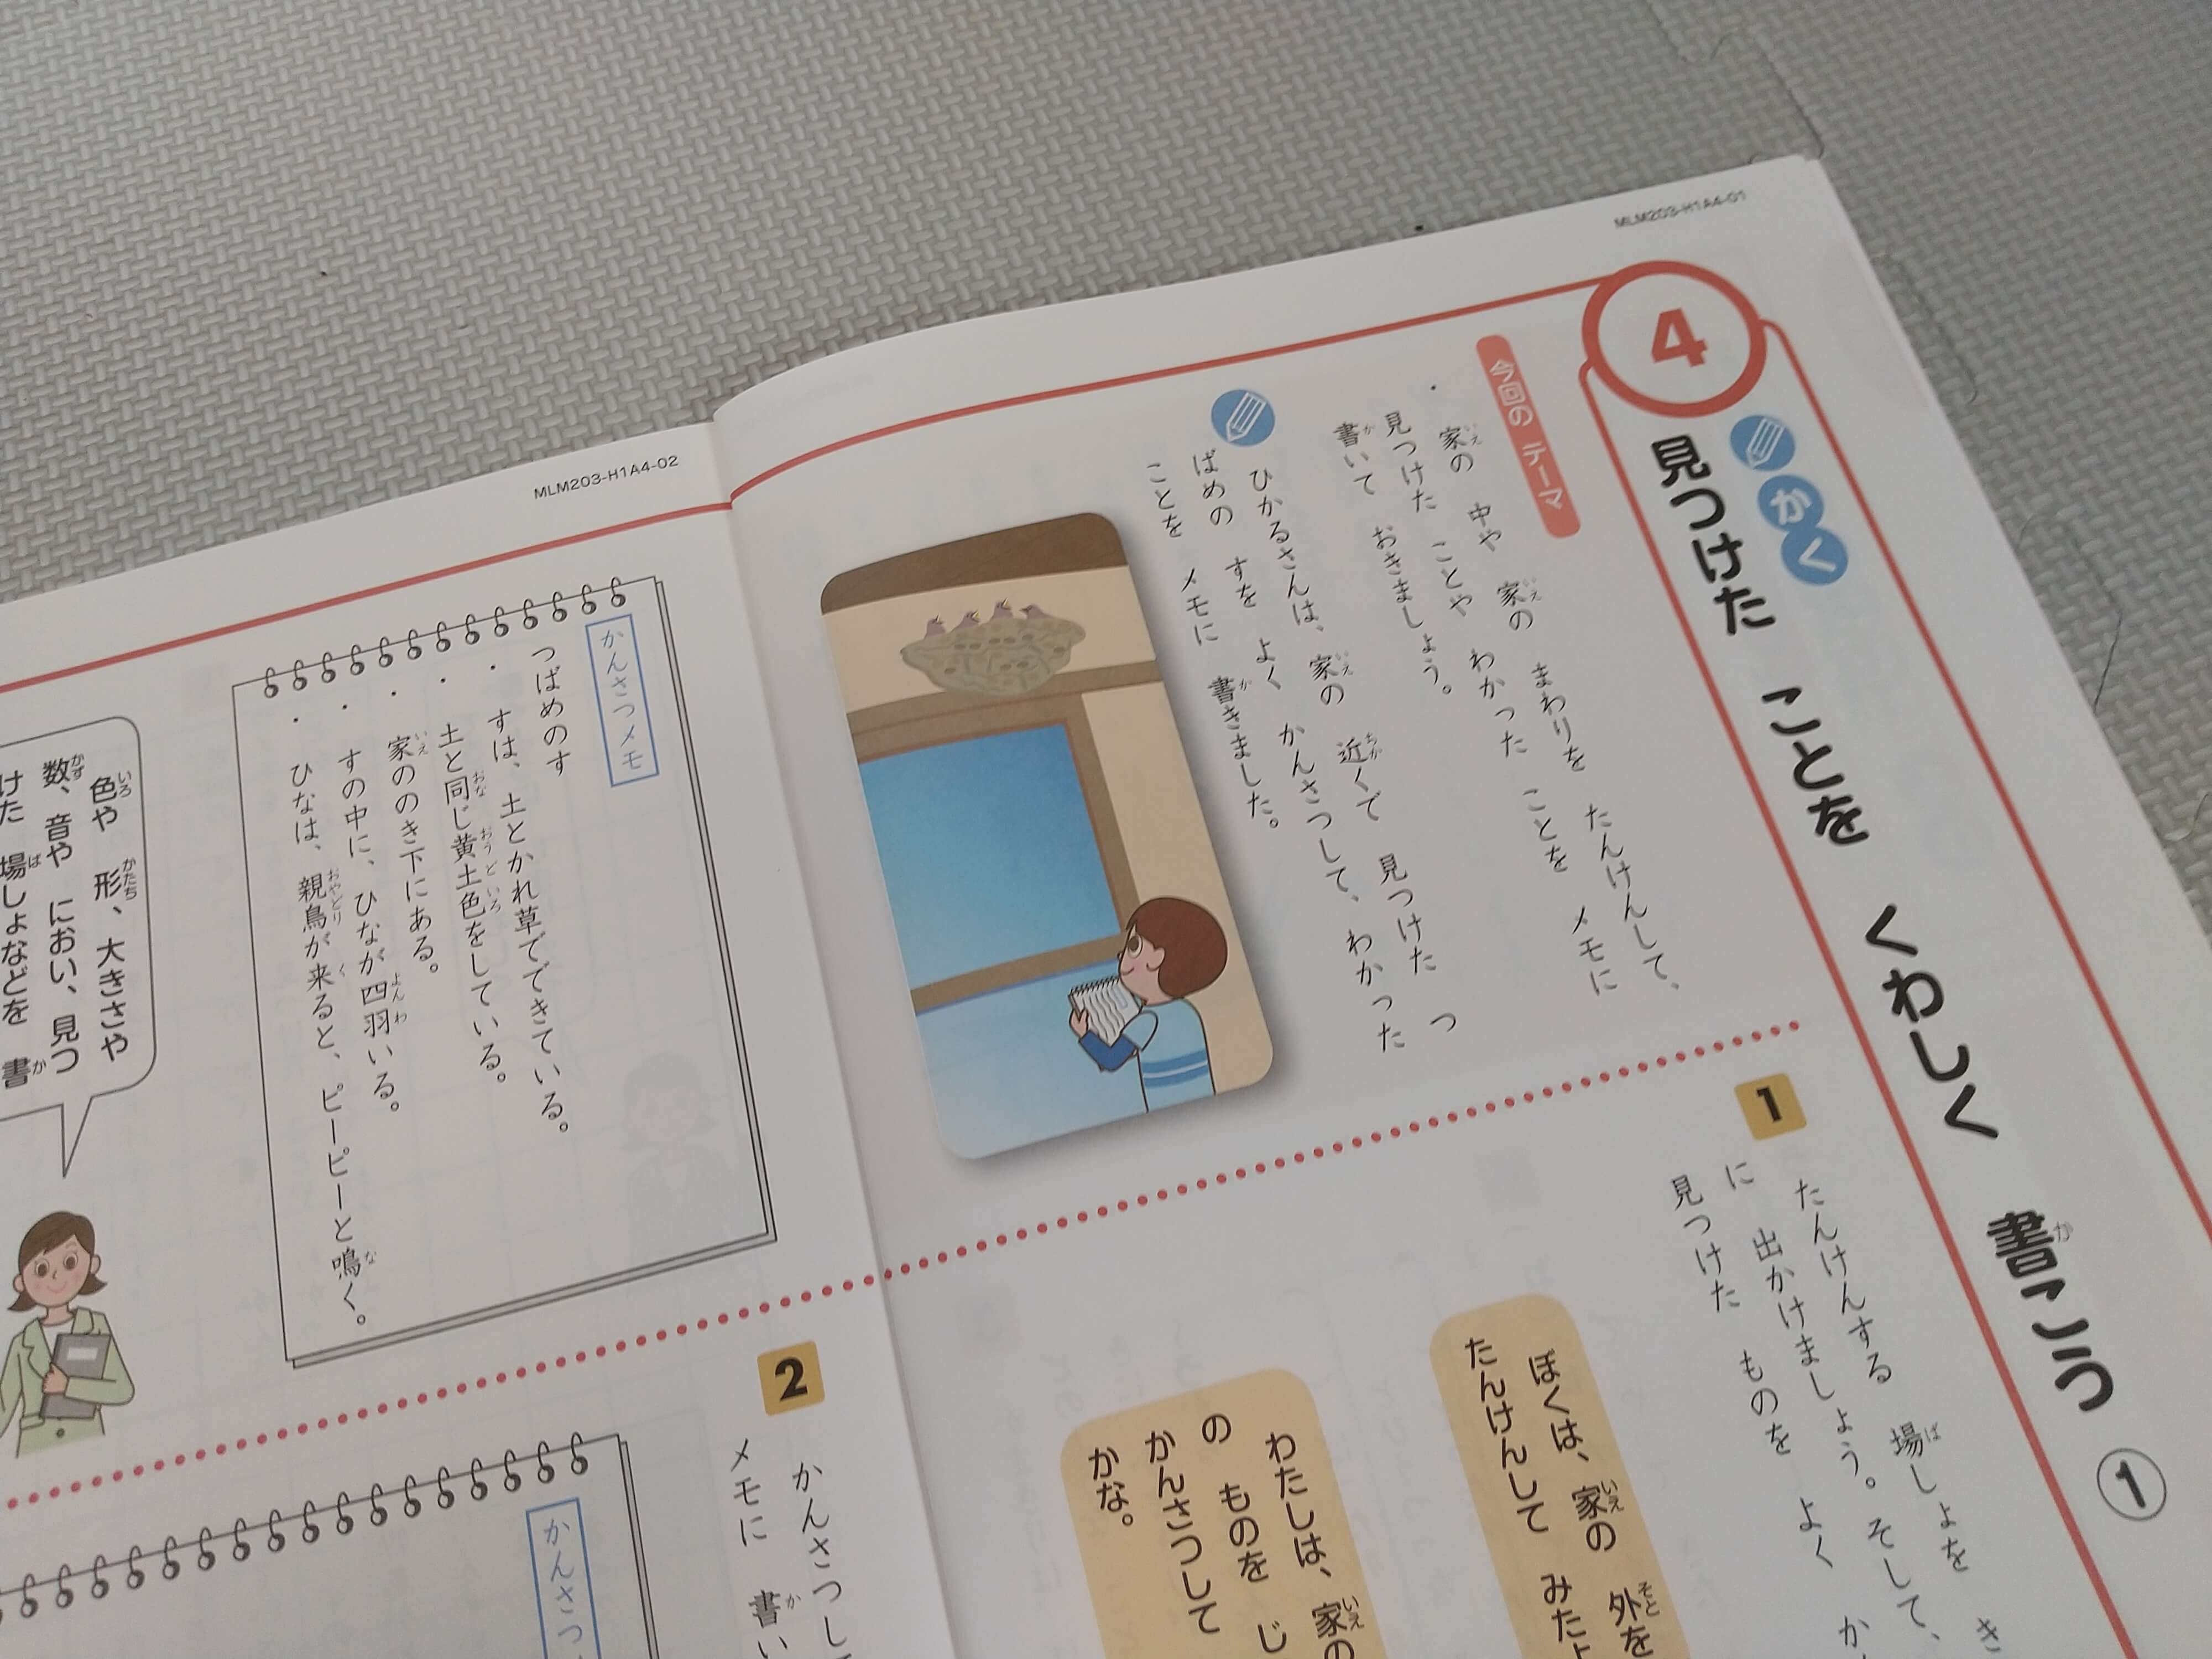 MLM203-H1A4-01
4
かく
見つけた ことを くわしく 書こう ①
今回の テーマ
・家の 中や 家の まわりを たんけんして、
見つけた ことや わかった ことを メモに
書いて おきましょう。
ひかるさんは、家の 近くで 見つけた つ
ばめの すを よく かんさつして、わかった
ことを メモに 書きました。
1
たんけんする 場しょを き
に 出かけましょう。そして、
見つけた ものを よく か
ぼくは、家の 外を
たんけんして みたよ
わたしは、家の
の ものを じ
かんさつして
かな。
MLM203-H1A4-02
かんさつメモ
つばめのす
・すは、土とかれ草でできている。
・土と同じ黄土色をしている。
・家ののき下にある。
・すの中に、ひなが四羽いる。
・ひなは、親鳥が来ると、ピーピーと鳴く。
色や 形、大きさや
数、音や におい、見つ
けた 場しょなどを 書
2
かんさつし
メモに 書い
かんさつ